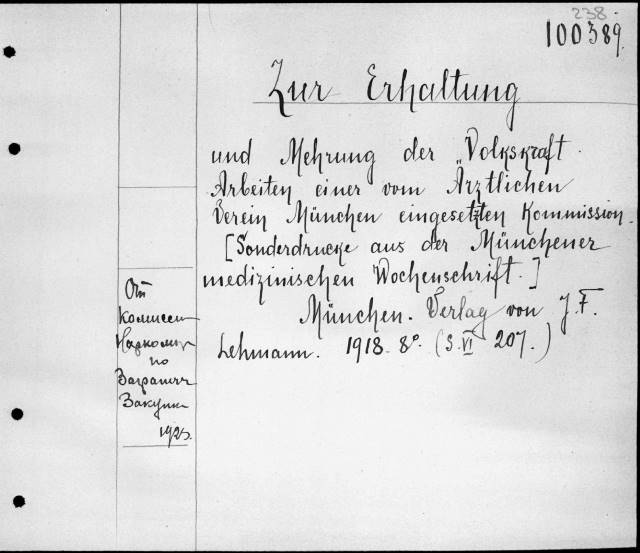 238.
100389.
Zur Erhaltung
und Mehrung der „Volkskraft.
Arbeiten einer vom Ärztlichen
Verein München eingesetzten Kommission.
[Sonderdrucke aus der Münchener
medizinischen Wochenschrift.]
München. Verlag von J. F.
Lehmann. 1918. 8°. (S. VI 207.)
От
Комиссии
Наркомпр
по
Загранич
Закупке
1923.